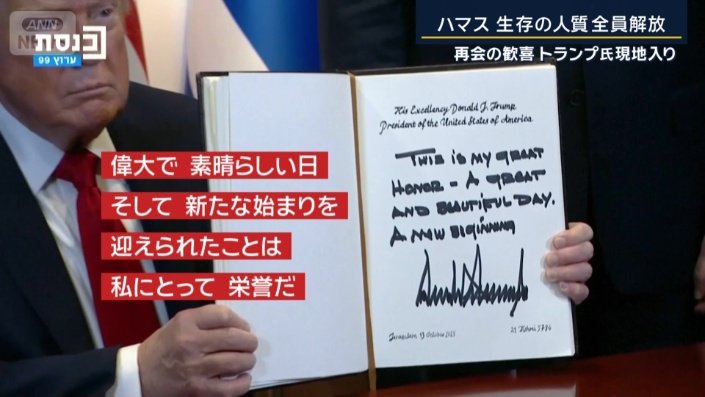 ANN
NEWS
כנסת
ערוץ 99
ハマス 生存の人質 全員解放
再会の歓喜 トランプ氏現地入り
His Excellency Donald J. Trump
President of the United States of America
THIS IS MY GREAT
HONOR - A GREAT
AND BEAUTIFUL DAY.
A NEW BEGINNING
Jerusalem 13 October 2025
21 Tishrei 5786
偉大で 素晴らしい日
そして 新たな始まりを
迎えられたことは
私にとって 栄誉だ